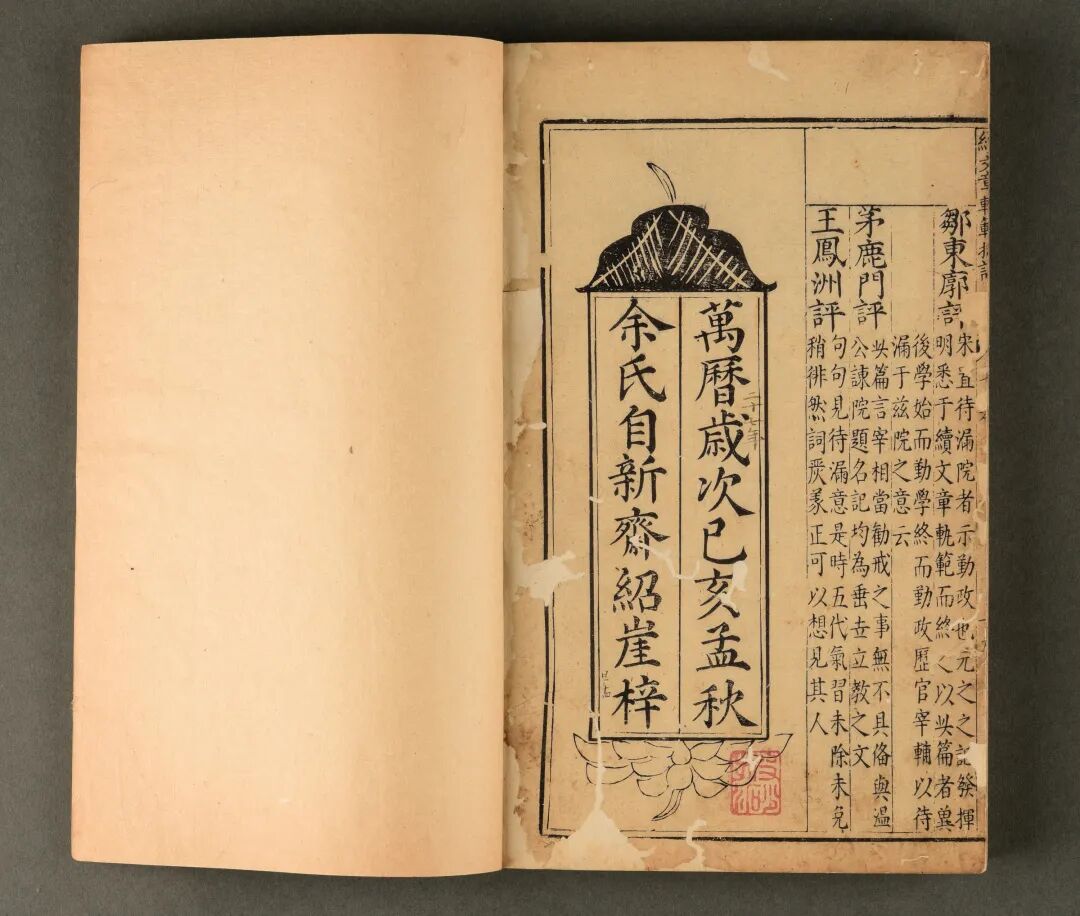 續文章軌範
鄒東廓評
宋直待漏院者示勤政也元之之記發揮
明悉于續文章軌範而終之以此篇者冀
後學始而勤學終而勤政歷官宰輔以待
漏于茲院之意云
茅鹿門評
此篇言宰相當勸戒之事無不具俻與溫
公諫院題名記均為垂世立教之文
王鳳洲評
句句見待漏意是時五代氣習未除未免
稍俳然詞嚴義正可以想見其人
萬曆歲次己亥孟秋
二十七年
余氏自新齋紹崖梓